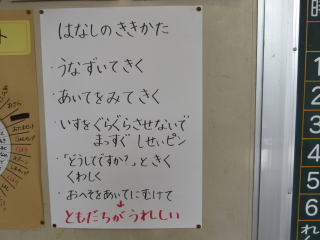 はなしのききかた
・うなずいてきく
・あいてをみてきく
・いすをぐらぐらさせないで
まっすぐ しせいピン
・「どうしてですか?」ときく
くわしく
・おへそをあいてにむけて
↓
ともだちがうれしい
時
1
2
3
4
5
6
れ